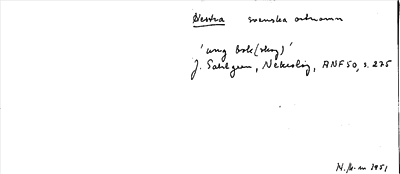 Hestra svenska ortnamn
'ung bok(skog)'
J. Sahlgren, Nekrolog, ANF 50, s. 275
N. 1951